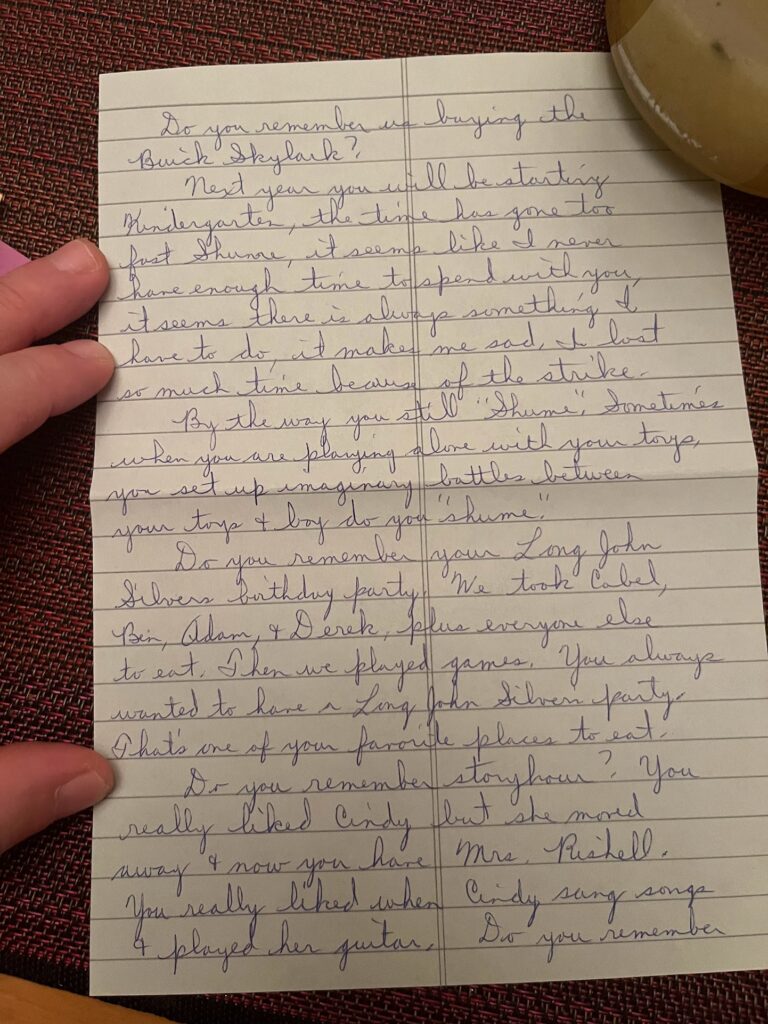 Do you remember us buying the
Buick Skylark?
Next year you will be starting
Kindergarten, the time has gone too
fast Shume, it seems like I never
have enough time to spend with you,
it seems there is always something I
have to do, it makes me sad. I lost
so much time because of the strike.
By the way you still "Shume". Sometimes
when you are playing alone with your toys,
you set up imaginary battles between
your toys & boy do you "shume".
Do you remember your Long John
Silvers birthday party. We took Cabel,
Ben, Adam, & Derek, plus everyone else
to eat. Then we played games. You always
wanted to have a Long John Silvers party.
That's one of your favorite places to eat.
Do you remember storyhour? You
really liked Cindy but she moved
away & now you have Mrs. Rishell.
You really liked when Cindy sang songs
& played her guitar. Do you remember